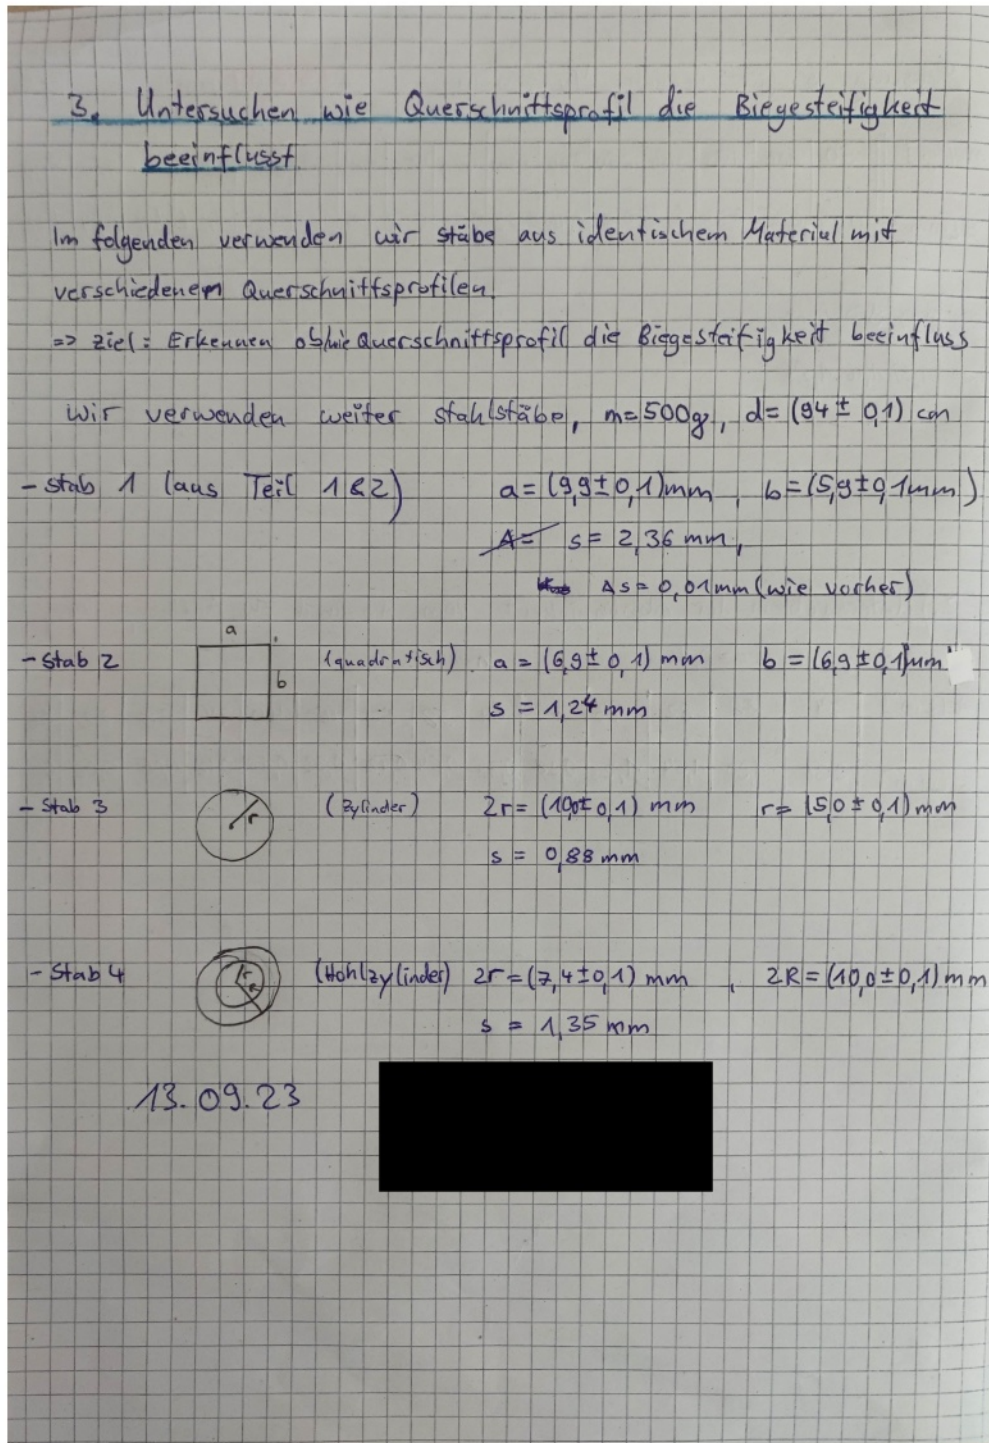 3. Untersuchen wie Querschnittsprofil die Biegesteifigkeit
beeinflusst
Im folgenden verwenden wir stäbe aus identischem Material mit
verschiedenem Querschnittsprofilen.
=> ziel: Erkennen ob/wie Querschnittsprofil die Biegesteifigkeit beeinfluss
wir verwenden weiter stahlstäbe, m=500g, d=(94±0,1) cm
- Stab 1 (aus Teil 1&2) a=(9,9±0,1)mm, b=(5,9±0,1mm)
A= s=2,36 mm,
Δs=0,01mm (wie vorher)
a
- Stab 2 b (quadratisch) a=(6,9±0,1) mm b=(6,9±0,1)mm
s=1,24 mm
- Stab 3 r (Zylinder) 2r=(10,0±0,1) mm r=(5,0±0,1)mm
s=0,88 mm
- Stab 4 r R (Hohlzylinder) 2r=(7,4±0,1) mm, 2R=(10,0±0,1)mm
s=1,35 mm
13.09.23